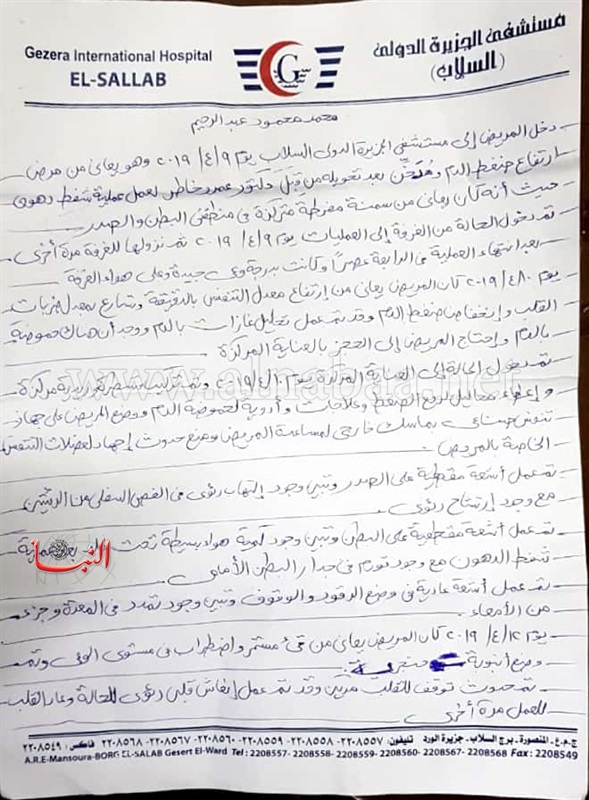 مستشفى الجزيرة الدولى
(السلاب)
Gezera International Hospital
EL-SALLAB
G
محمد محمود عبد الرحيم
دخل المريض إلى مستشفى الجزيرة الدولى السلاب يوم ٢٠١٩/٤/٩ وهو يعانى من مرض
ارتفاع ضغط الدم ومدخن بعد تحويله من قبل دكتور عمرو خاطر لعمل عملية شفط دهون
حيث أنه كان يعانى من سمنة مفرطة متركزة فى منطقتى البطن والصدر
تم دخول الحالة من الغرفة إلى العمليات يوم ٢٠١٩/٤/٩ تم نزولها للغرفة مرة أخرى
بعد انتهاء العملية فى الرابعة عصراً وكانت بدرجة وعى جيدة وعلى هواء الغرفة
يوم ٢٠١٩/٤/١٠ كان المريض يعانى من إرتفاع معدل التنفس بالدقيقة وتسارع بمعدل ضربات
القلب وإنخفاض ضغط الدم وقد تم عمل تحليل غازات بالدم ووجد أن هناك حموضة
بالدم وإحتاج المريض إلى الحجز بالعناية المركزة
تم دخول الحالة إلى العناية المركزة يوم ٢٠١٩/٤/١٠ وتم تركيب قسطرة وريدية مركزة
وإعطاء محاليل لرفع الضغط وعلاجات وأدوية لحموضة الدم ووضع المريض على جهاز
تنفس صناعى بماسك خارجى لمساعدة المريض ومنع حدوث إجهاد لعضلات التنفس
الخاصة بالمريض.
تم عمل أشعة مقطعية على الصدر وتبين وجود إلتهاب رئوى فى الفص السفلى من الرئتين
مع وجود إرتشاح رئوى.
تم عمل أشعة مقطعية على البطن وتبين وجود كمية هواء بسيطة تحت بعد عملية
شفط الدهون مع وجود تورم فى جدار البطن الأمامى.
تم عمل أشعة عادية فى وضع الرقود والوقوف وتبين وجود تمدد فى المعدة وجزء
من الأمعاء.
يوم ٢٠١٩/٤/١٢ كان المريض يعانى من قئ مستمر واضطراب فى مستوى الوعى وتم
وضع أنبوبة حنجرية
تم حدوث توقف للقلب مرتين وقد تم عمل إنعاش قلبى رئوى للحالة وعاد القلب
للعمل مرة أخرى
www.alnabaa.net
النبأ
ج.م.ع. المنصورة - برج السلاب - جزيرة الورد تليفون: ٢٢٠٨٥٥٧-٢٢٠٨٥٥٨-٢٢٠٨٥٥٩-٢٢٠٨٥٦٠-٢٢٠٨٥٦٧-٢٢٠٨٥٦٨ فاكس: ٢٢٠٨٥٤٩
A.R.E-Mansoura-BORG EL-SALAB Gesert El-Ward Tel: 2208557-2208558-2208560-2208567-2208568 Fax: 2208549